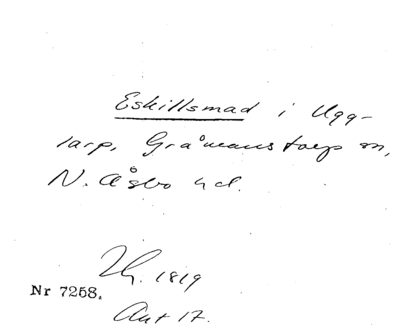 Eskillsmad i Ugg-
larp, Gråmanstorps sn,
N. Åsbo hd.
1819
Nr 7258.
Ant 17.